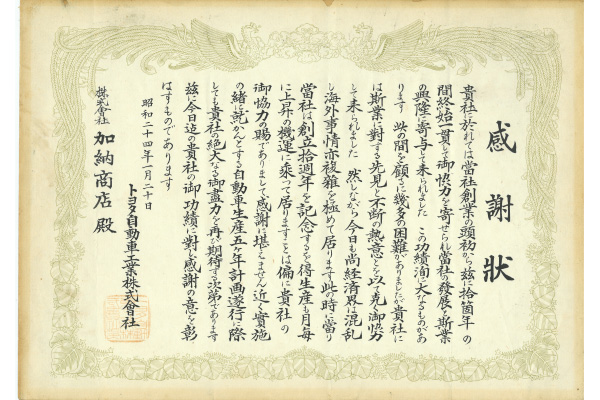 感謝狀
貴社に於れては當社創業の頭初から茲に拾箇年の
間終始一貫して御協力を寄せられ當社の發展と斯業
の興隆に寄与して来られました この功績洵に大なるものがあ
ります 此の間を顧るに幾多の困難がありましたが貴社に
は斯業に對する先見と不斷の熱意とを以て克く御協力
して来られました 然しながら今日も尚経済界は混乱
し海外事情亦複雜を極めて居ります此の時に當り
當社は創立拾週年を記念するを得生産も月毎
に上昇の機運に乘って居りますことは偏に貴社の
御協力の賜でありまして感謝に堪えません近く實施
の緒に就かんとする自動車生産五ヶ年計画遂行に際
しても貴社の絶大なる御盡力を再び期待する次第であります
茲に今日迄の貴社の御功績に對し感謝の意を彰
はすものであります
昭和二十四年一月二十日
トヨタ自動車工業株式會社
株式會社 加納商店 殿